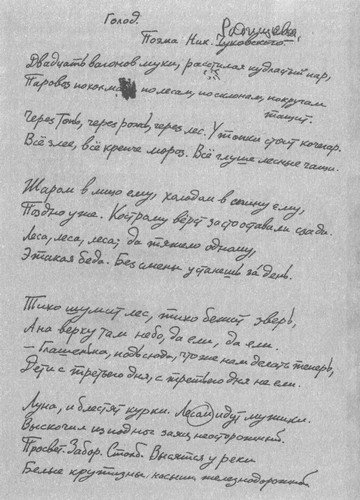 Голод.
Радищева,
Поэма Ник. Чуковского
Двадцать вагонов муки, распуская кудластый пар,
Паровоз поволок по лесам, по склонам, по кругам
тащит.
Через топь, через рожь, через лес. У топки стоит кочегар.
Всё злее, всё крепче мороз. Всё глуше лесные чащи.
Жаром в лицо ему, холодом в спину ему,
Поздно уже. Кострому вёрст за сто оставили сзади.
Леса, леса, леса; да тяжело одному,
Этакая беда. Без смены устанешь за день.
Тихо шумит лес, тихо бежит зверь,
А на верху там небо, да ели, да ели.
– Глашенька, подь сюда, что же нам делать теперь,
Дети с третьего дня, с третьего дня не ели.
Луна, и блестят курки. Лесом идут мужики.
Выскочил из под ног заяц неосторожный.
Просвет. Забор. Столб. Высятся у реки
Белые крутизны насыпи железнодорожной